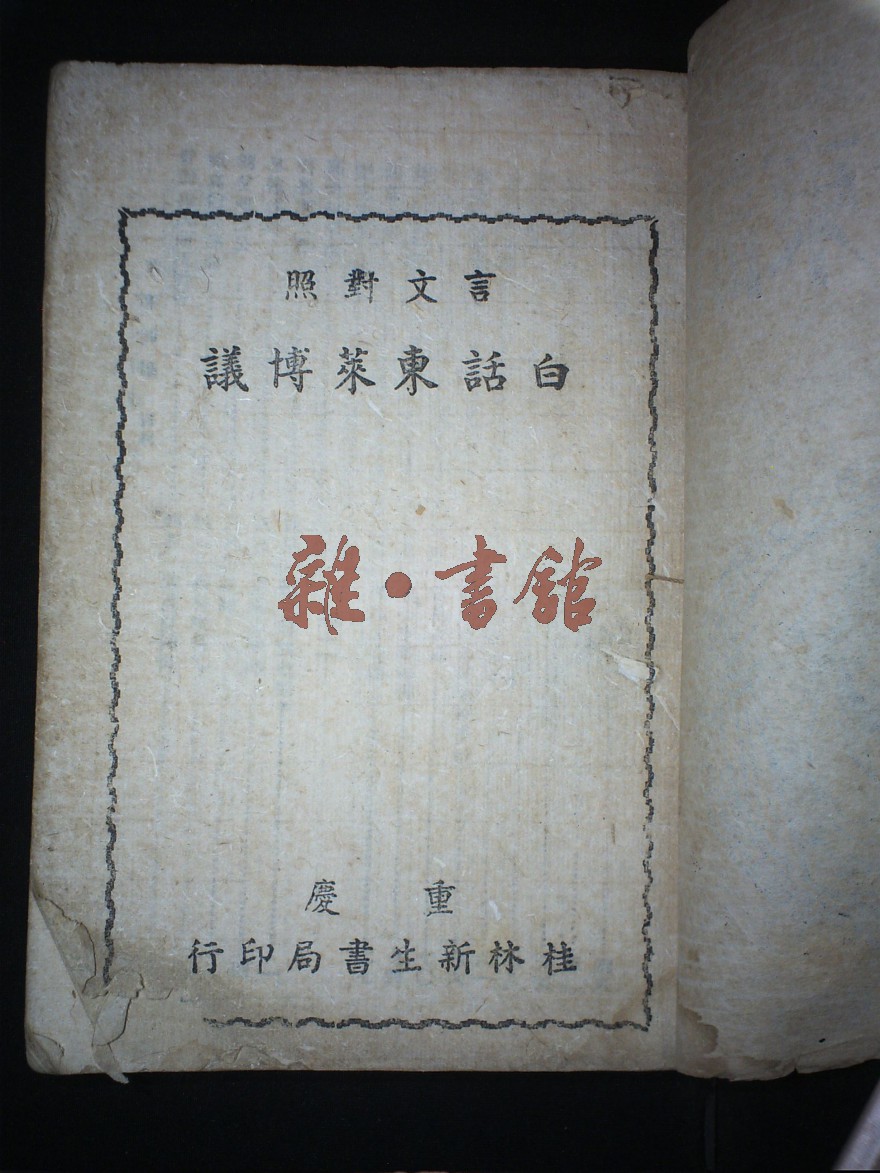 言文對照
白話東萊博議
雜·書館
重慶
桂林新生書局印行